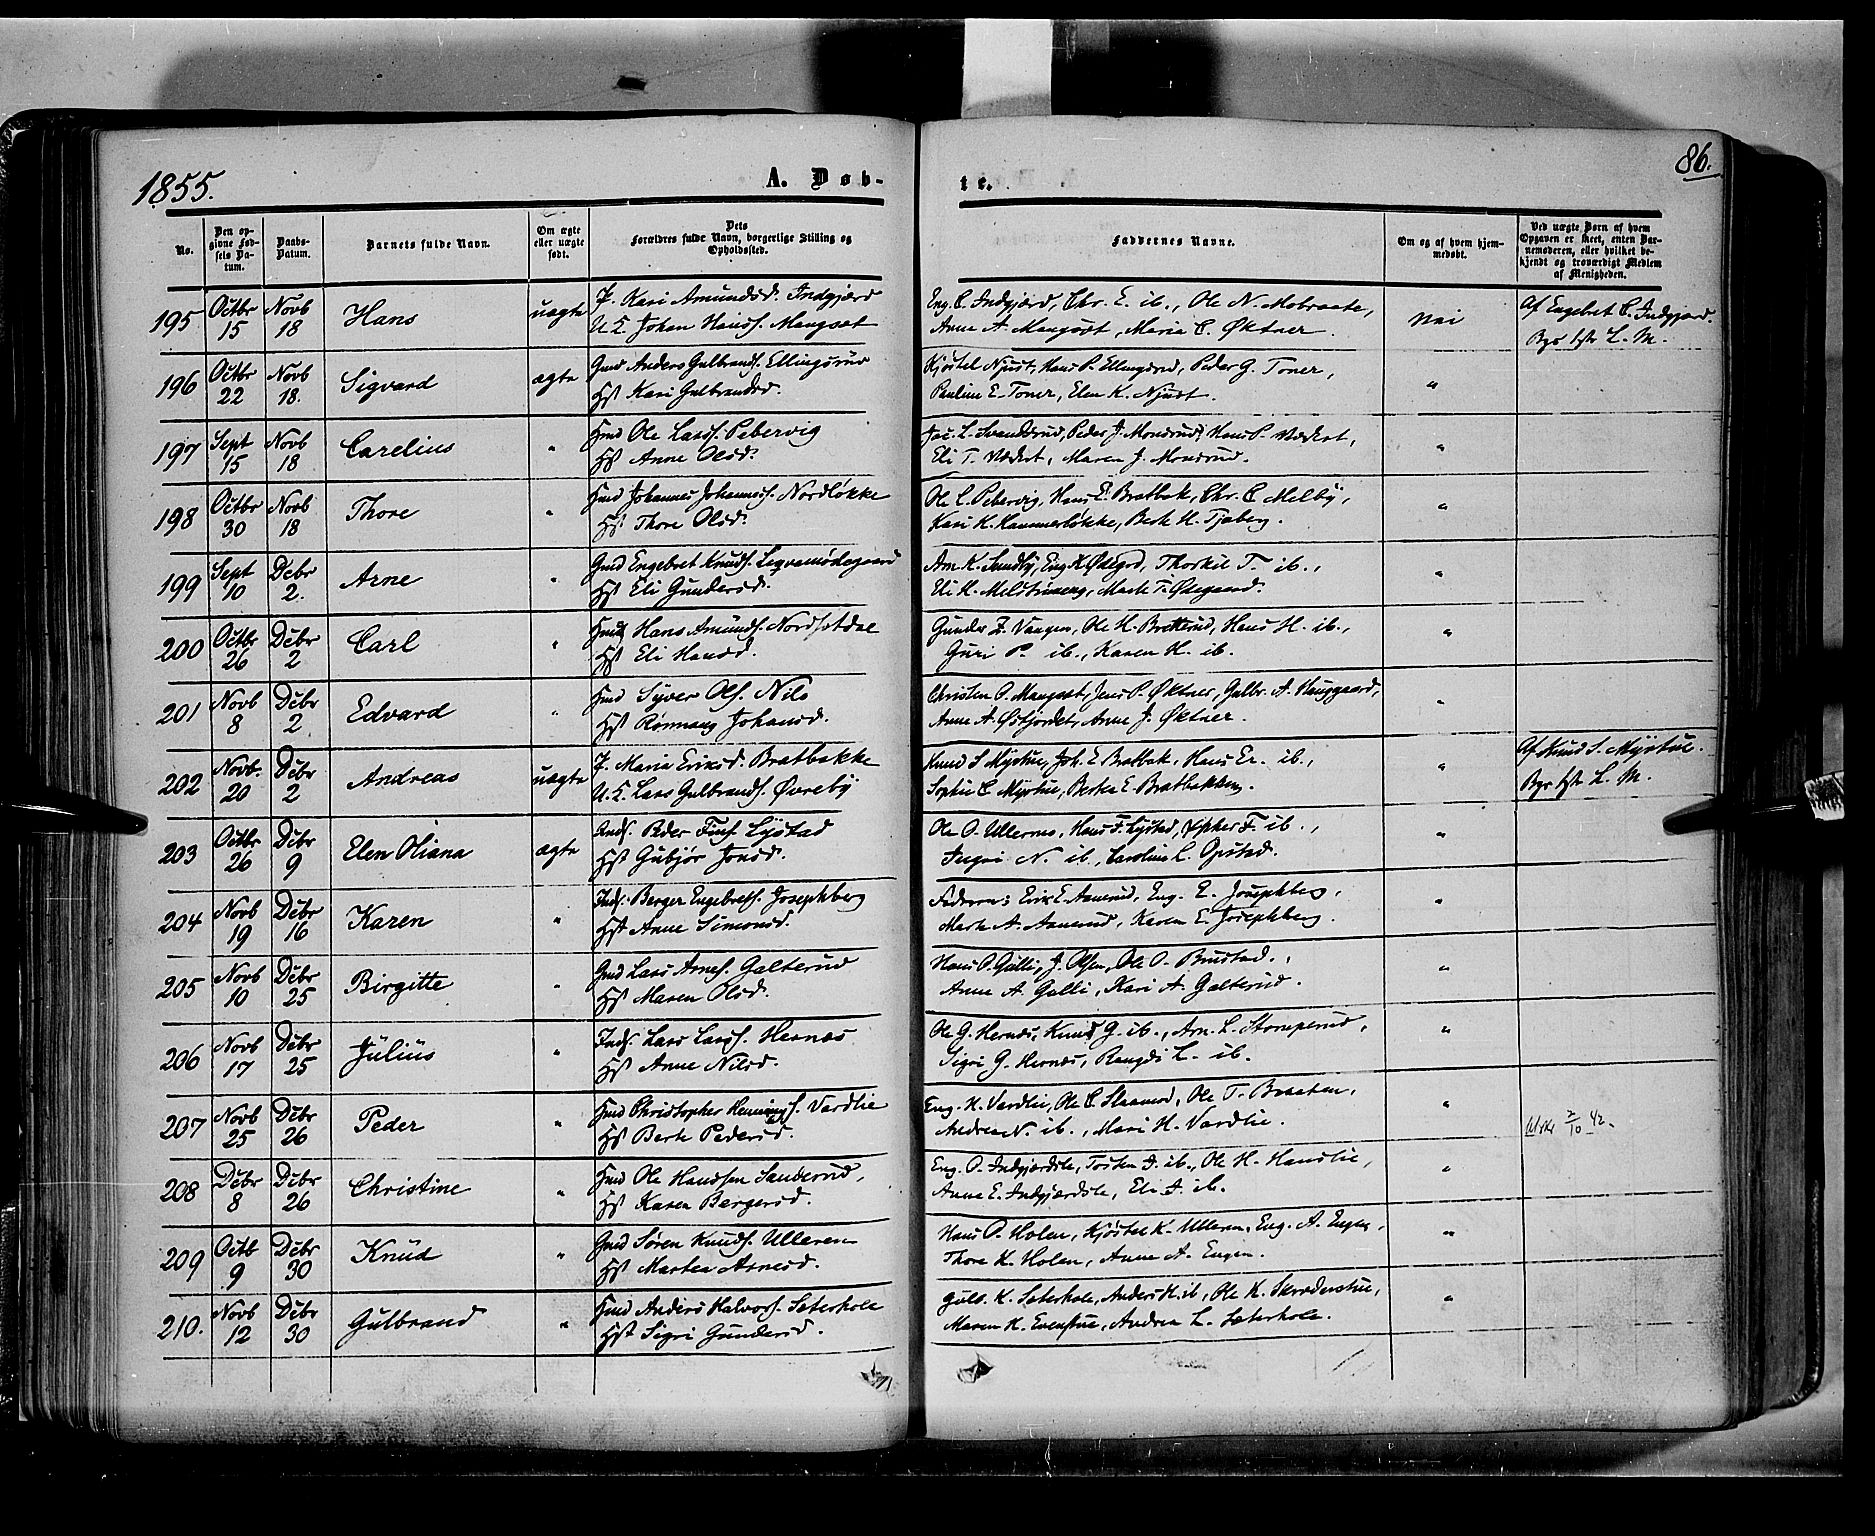 1855.
A. Døb-
te.
86.
No.
Den op-
givne Fød-
sels Da-
tum.
Daabs-
Datum.
Barnets fulde Navn.
Om ægte
eller uægte
født.
Dets
Forældres fulde Navn, borgerlige Stilling og
Opholdssted.
Faddernes Navne.
Om og af hvem hjem-
medøbt.
Ved uægte Børn af hvem
Opgaven er skeet, enten Bar-
nemoderen, eller hvilket be-
kjendt og troværdigt Medlem
af Menigheden.
195 Octbr 15 Novb 18 Hans uægte P. Kari Amundsd. Indgjærd
U.K. Johan Hanss. Mangset
Eng. C. Indgjærd, Chr. E. ib., Ole N. Mobraate,
Anne A. Mangset, Maria C. Øktner.
Nei
Af Engebret C. Indgjærd.
L. M.
196 Octbr 22 Novb 18. Sigvard ægte Gmd Anders Gulbrands. Ellingsrud
Hst Kari Gulbrandsd.
Kjøstel Njust, Hans P. Ellingsrud, Peder G. Toner,
Pauline E. Toner, Elen K. Njust.
"
197 Sept 15 Novb 18 Carelius " Hmd Ole Larss. Pebervig
Hst Anne Olsd.
Jac. L. Svendsrud, Peder J. Monsrud, Hans P.
Eli T. Maren J. Monsrud.
"
198 Octbr 30 Novb 18 Thore " Hmd Johannes Johanness. Nordløkke
Hst Thore Olsd.
Ole L. Pebervig, Hans E. Bratbak, Chr. C. Melby,
Kari K. Kammerløkke, Berte H. Tjøberg.
"
199 Sept 10 Debr 2. Arne " Gmd Engebret Knuds.
Hst Eli Gundersd.
Arn K. Sundby, Eng. K. Ødegrd, Thorkil T. ib.,
Eli H. Marte T. Ødegaard.
"
200 Octbr 26 Debr 2 Carl " Hmd Hans Amunds. Nordsetdal
Hst Eli Hansd.
Gunder L. Vangen, Ole H. Bretterud, Hans H. ib.,
Guri P. ib., Karen H. ib.
"
201 Novb 8 Debr 2 Edvard " Hmd Syver Ols. Nilo
Hst Rønnaug Johansd.
Christen O. Mangset, Jens P. Øktner, Gulbr. A. Hauggaard,
Anne A. Østfjordet, Anne J. Øktner.
"
202 Novb. 20 Debr 2 Andreas uægte P. Maria Eriksd. Bratbakke
U.K. Lars Gulbrands. Øvreby
Knud S. Myrstue, Joh. E. Bratbak, Hans Er. ib.,
Sophie C. Myrstue, Berthe E. Bratbakken.
"
Af Knud S. Myrstue.
L. M.
203 Octbr 26 Debr 9 Elen Oliana ægte Inds. Peder Fins. Lystad
Hst Gubjør Jonsd.
Ole O. Ullernes, Hans F. Lystad, F. ib.,
Ingri N. ib., Caroline L. Opstad.
"
204 Novb 19 Debr 16 Karen " Inds. Berger Engebrets. Josephberg
Hst Anne Simonsd.
Faderen, Erik E. Aamerud, Eng. E. Josephberg,
Marte A. Aamerud, Karen E. Josephberg.
"
205 Novb 10 Debr 25 Birgitte " Gmd Lars Arnes. Galterud
Hst Maren Olsd.
Hans P. Galli, J. Olsen, Ole O. Brustad,
Anne A. Galli, Kari A. Galterud.
"
206 Novb 17 Debr 25 Julius " Inds. Lars Larss. Hernæs
Hst Anne Nilsd.
Ole G. Hernæs, Knud G. ib., Arn. L. Stomperud,
Sigri G. Hernæs, Rangdi L. ib.
"
207 Novb 25 Debr 26 Peder " Hmd Christopher Hennings. Vardlie
Hst Berte Pedersd.
Eng. K. Vardlie, Ole C. Slaamod, Ole T. Braaten,
Andrea N. ib., Mari H. Vardlie.
"
7/10 42.
208 Debr 8 Debr 26 Christine " Hmd Ole Hansen Sanderud,
Hst Karen Bergersd.
Eng. O. Indgjærdsle, Tosten J. ib., Ole H. Hanslie,
Anne E. Indgjærdsle, Eli J. ib.
"
209 Octb 9 Debr 30 Knud " Gmd Søren Knuds. Ulleren
Hst Marthea Arnesd.
Hans O. Holen, Kjøstel K. Ulleren, Eng. A. Engen,
Thore K. Holen, Anne A. Engen.
"
210. Novb 12 Debr 30 Gulbrand " Hmd Anders Halvors. Seterhole
Hst Sigri Gundersd.
Gulb. K. Seterhole, Anders H. ib, Ole K. Skrederstue,
Maren K. Evenstue, Andrea L. Seterhole.
"